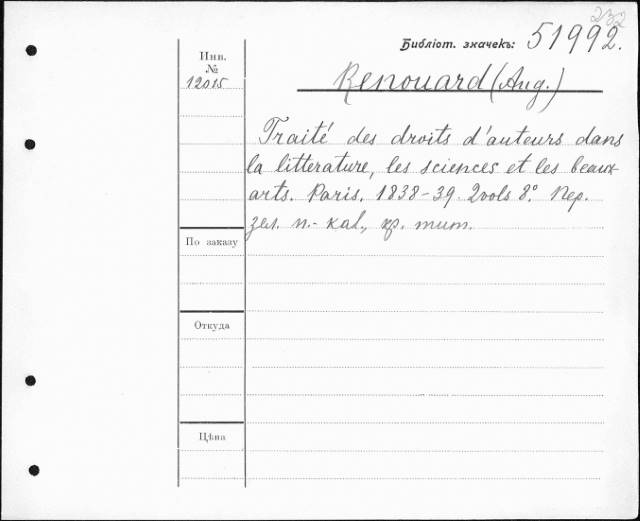 232
Библіот. значекъ: 51992.
Инв.
№
12015
Renouard (Aug.)
Traité des droits d'auteurs dans
la littérature, les sciences et les beaux
arts. Paris. 1838-39. 2 vols 8°. Пер.
зел. п.-кал., кр. тит.
По заказу
Откуда
Цѣна